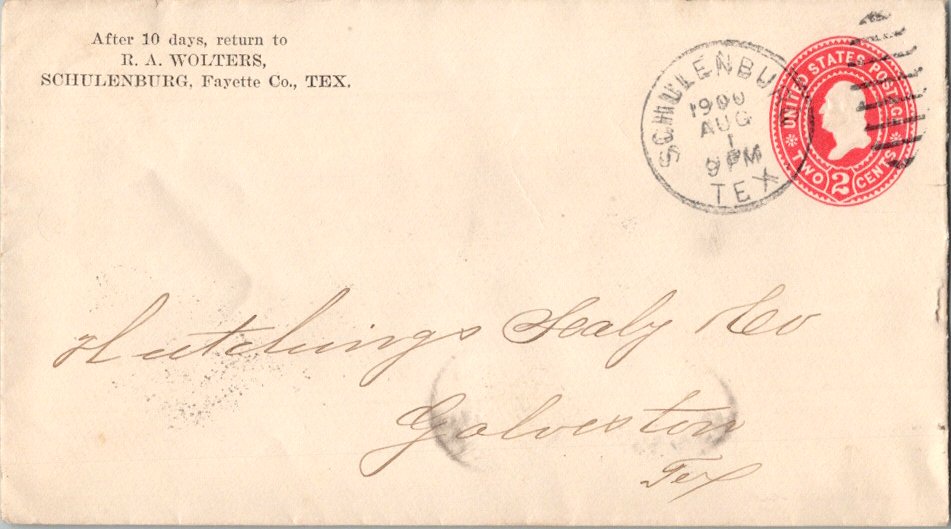 After 10 days, return to
R. A. WOLTERS,
SCHULENBURG, Fayette Co., TEX.
SCHULENBU
1900
AUG
1
9 PM
TEX
UNITED STATES POSTAGE
TWO 2 CENTS
Hutchings Sealy & Co
Galveston
Tex